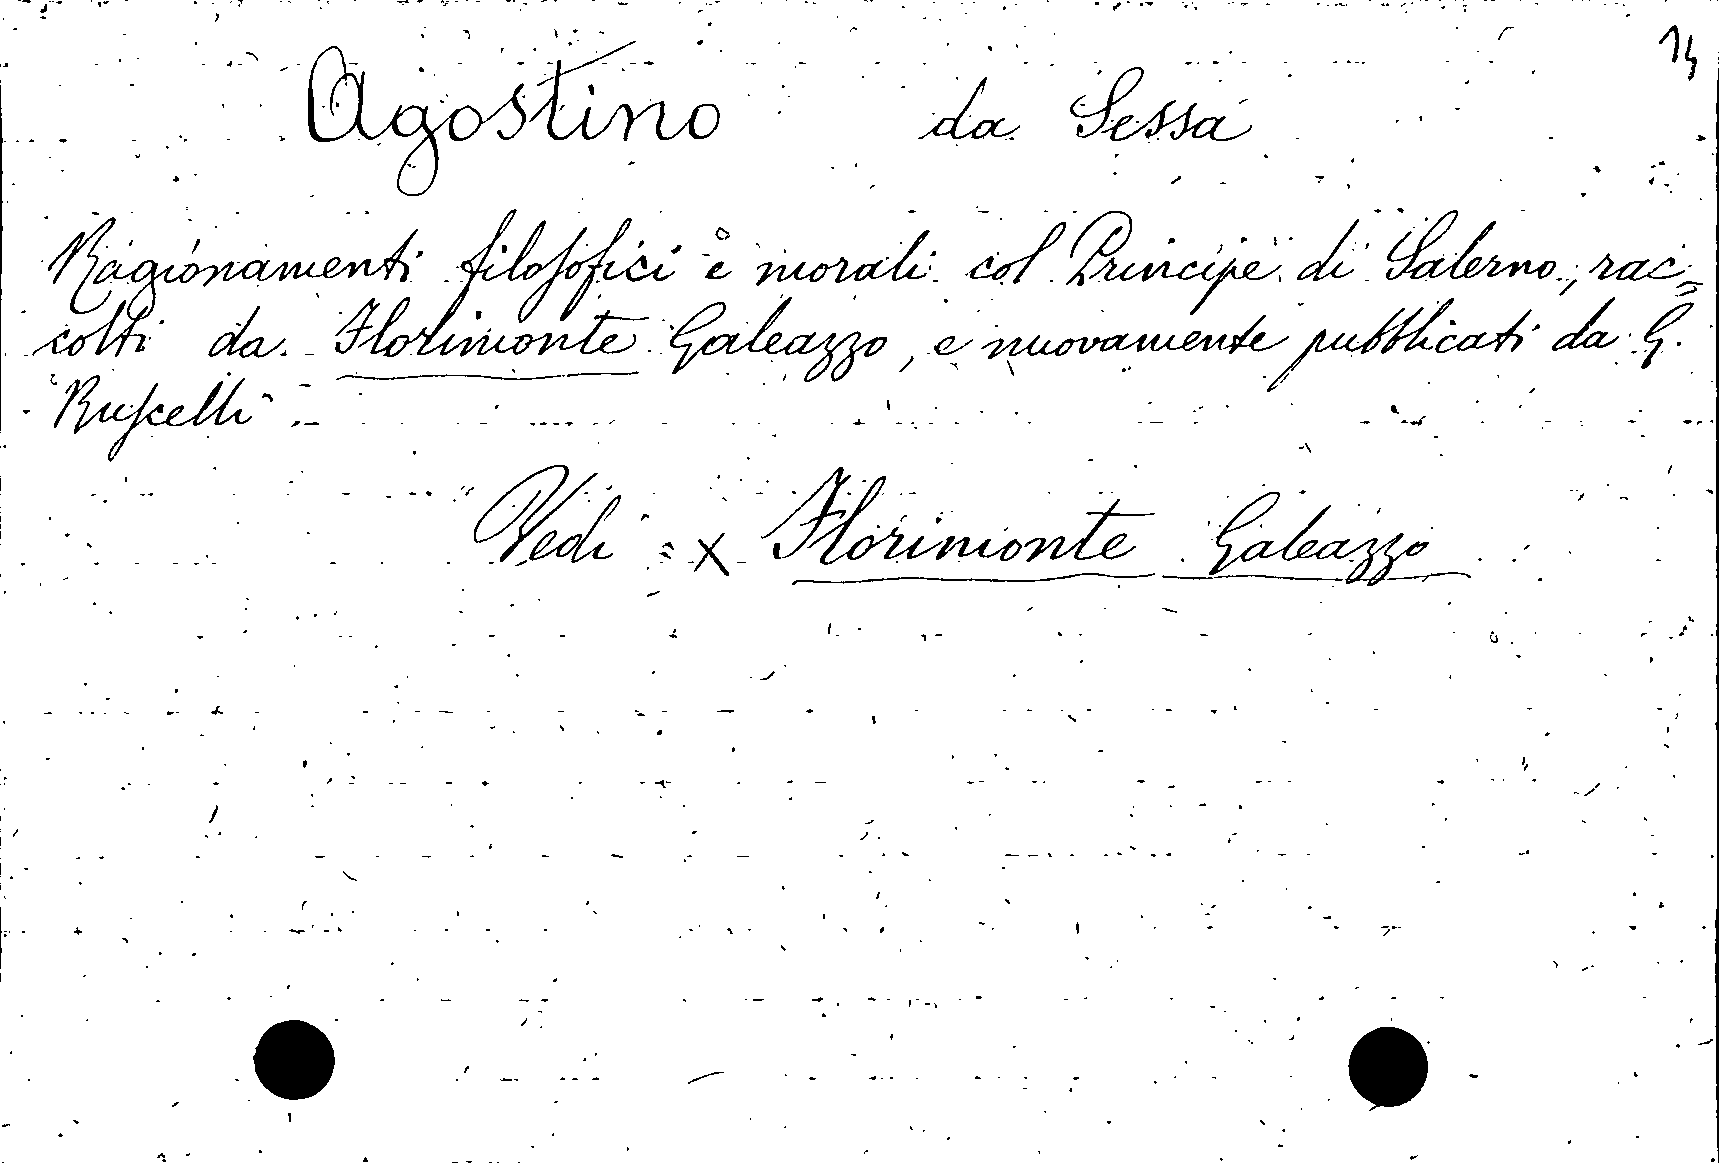 14
Agostino da Sessa
Ragionamenti filosofici e morali col Principe di Salerno, rac=
colti da Florimonte Galeazzo, e nuovamente pubblicati da G.
Ruscelli
Vedi = x Florimonte Galeazzo